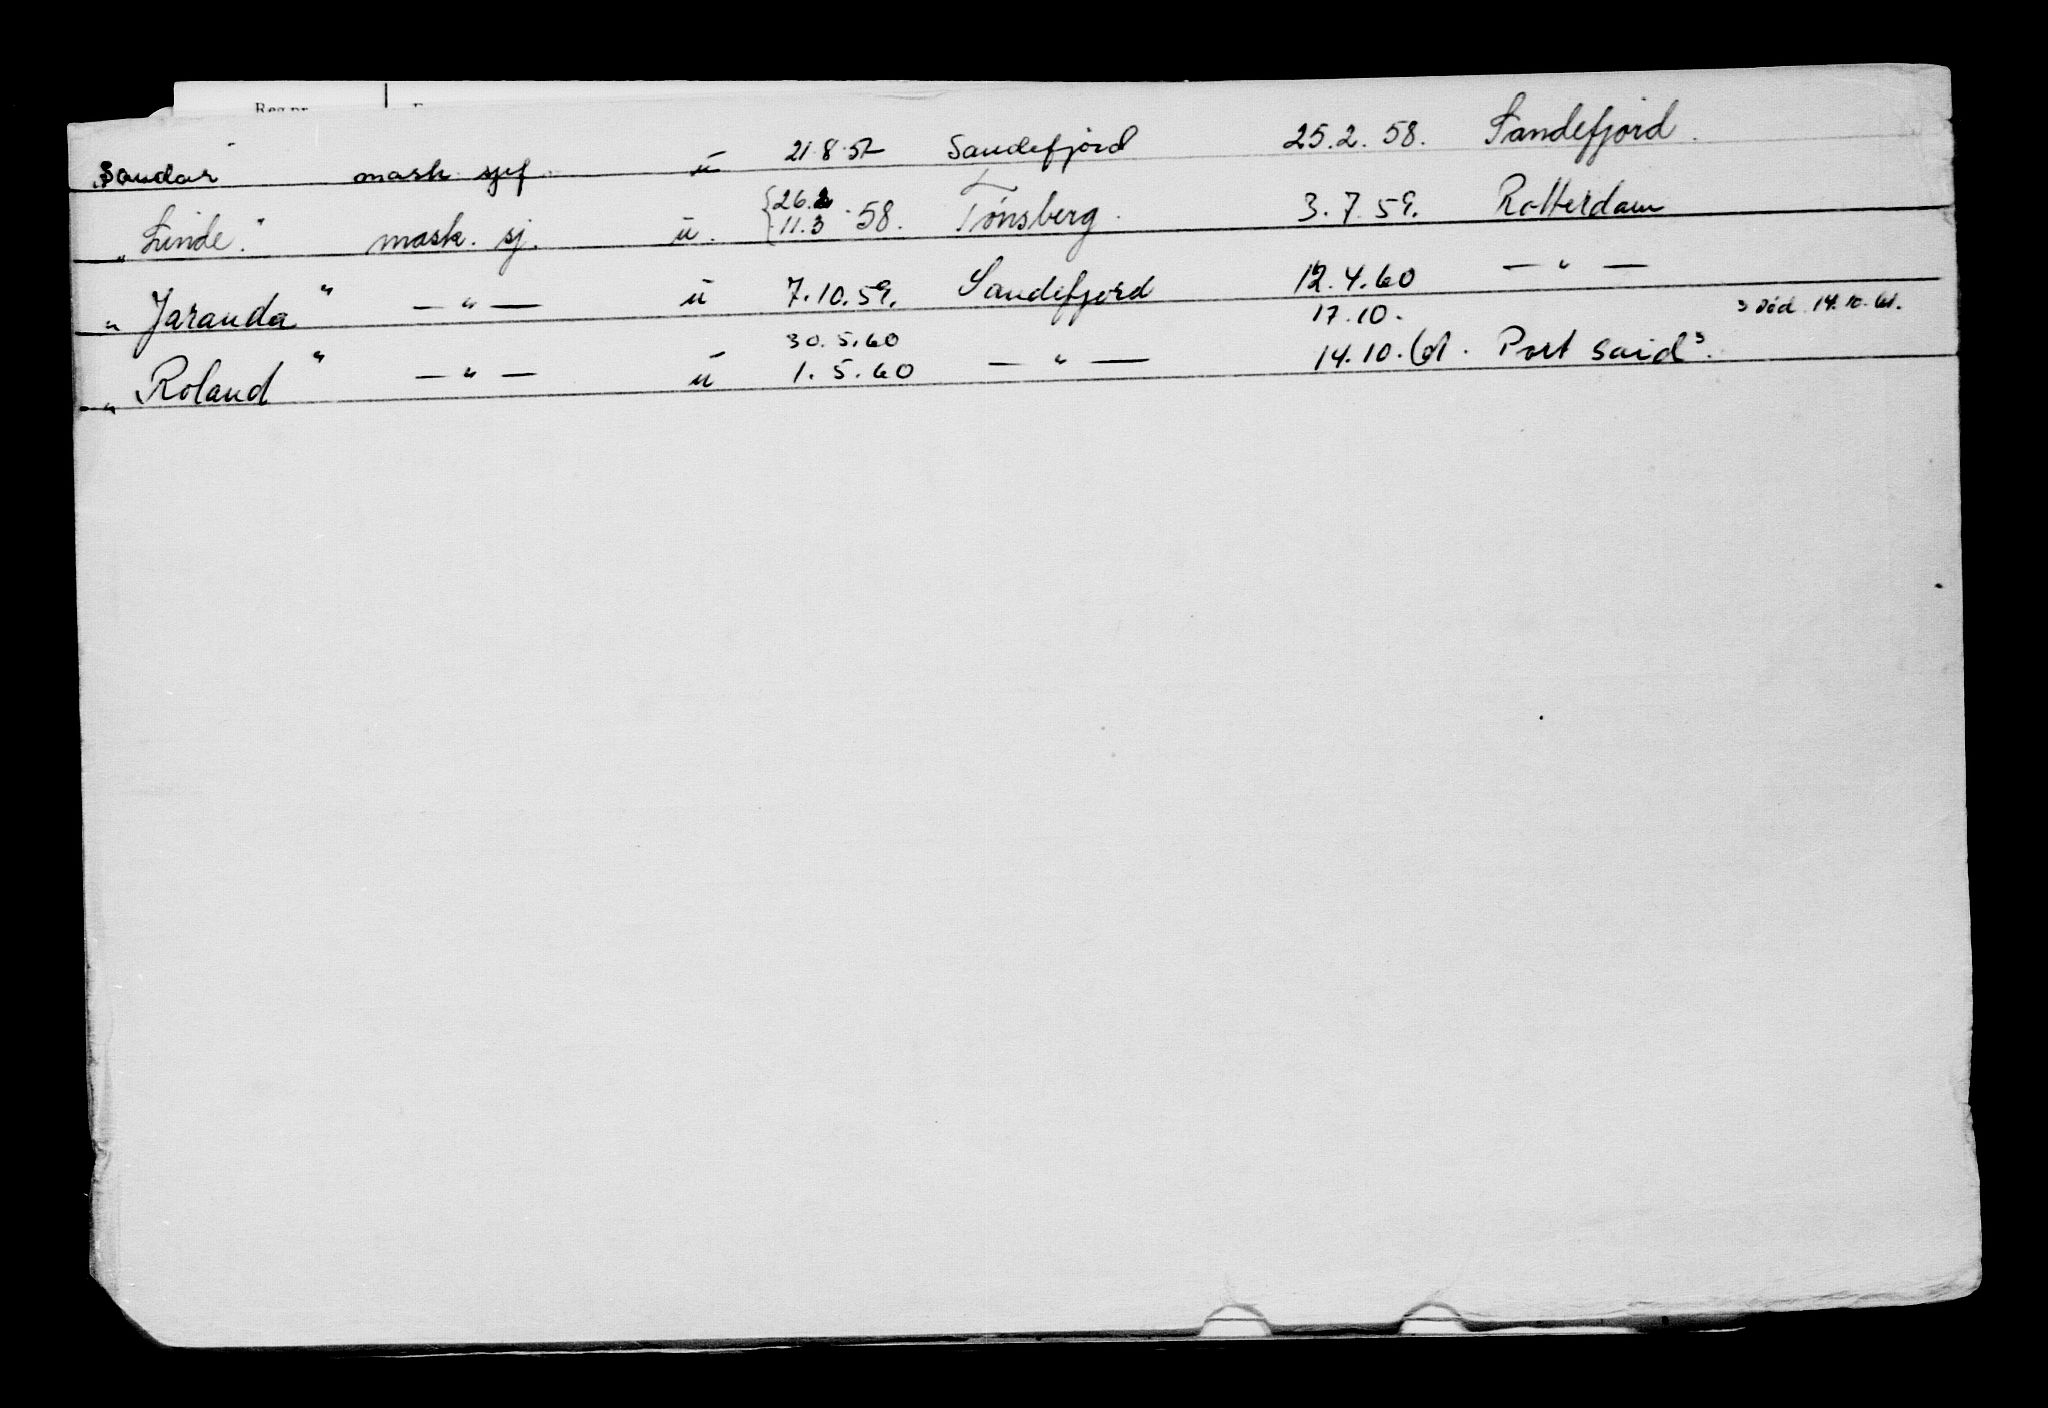 "Sandar" mask sjef u 21.8.57 Sandefjord 25.2.58. Sandefjord.
"Linde." mask. sj. u. {26.2 11.3 .58. Tønsberg. 3.7.59. Rotterdam
"Jaranda" — " — u 7.10.59. Sandefjord 12.4.60 — " —
30.5.60 17.10. ³ død 14.10.61.
"Roland" — " — u 1.5.60 — " — 14.10.61. Port Said³.